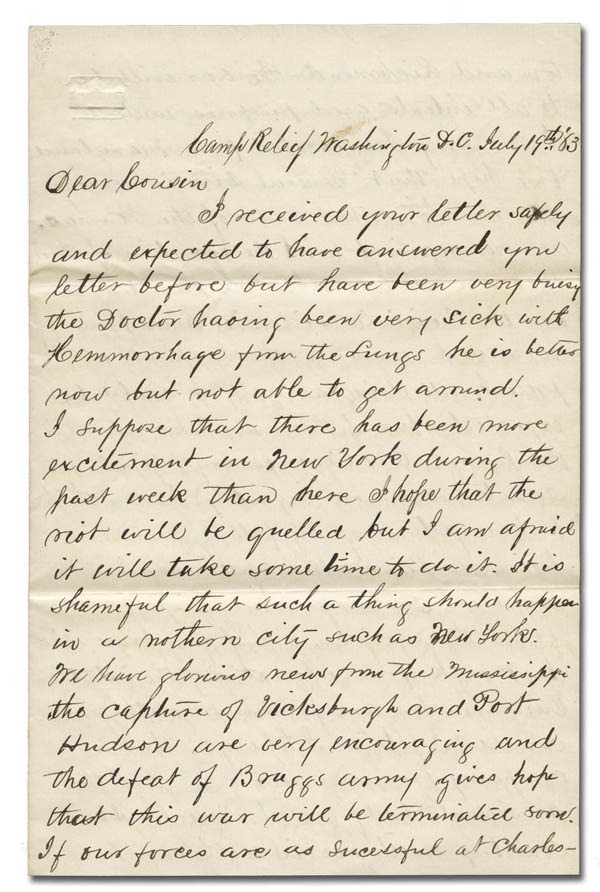 Camp Relief Washington D.C. July 19th '63
Dear Cousin
I received your letter safely
and expected to have answered you
letter before but have been very buisy
the Doctor having been very sick with
Hemmorrhage from the Lungs he is better
now but not able to get around.
I suppose that there has been more
excitement in New York during the
past week than here I hope that the
riot will be quelled but I am afraid
it will take some time to do it. It is
shameful that such a thing should happen
in a nothern city such as New York.
We have glorious news from the Mississippi
the capture of Vicksburgh and Port
Hudson are very encouraging and
the defeat of Braggs army gives hope
that this war will be terminated soon.
If our forces are as sucessful at Charles-